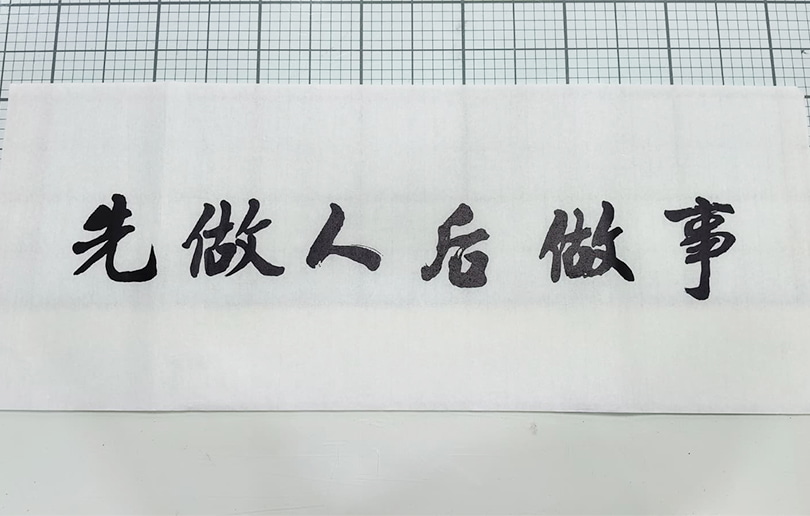 先做人后做事